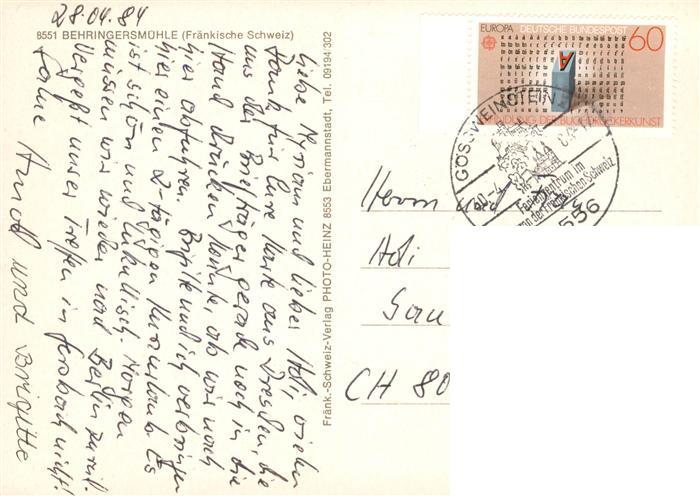 28.04.84
8551 BEHRINGERSMÜHLE (Fränkische Schweiz)
Liebe Myriam und lieber Adi, vielen
Dank für Eure Karte aus Dresden, die
uns der Briefträger gerade noch in die
Hand drücken konnte, ob wir noch
hier abfuhren. Brigitte und ich verbringen
hier einen 2-tägigen Kurzurlaub. Es
ist schön und lukullisch. Morgen
müssen wir wieder nach Berlin zurück.
Vergeßt unser Treffen in nicht!
Arnold und Brigitte
Fränk.-Schweiz-Verlag PHOTO-HEINZ 8553 Ebermannstadt, Tel. 09194/302
EUROPA DEUTSCHE BUNDESPOST 60
A
ERFINDUNG DER BUCHDRUCKERKUNST
GÖSSWEINSTEIN
Ferienzentrum im
der Fränkischen Schweiz
8556
Herrn und
Adi
CH 80